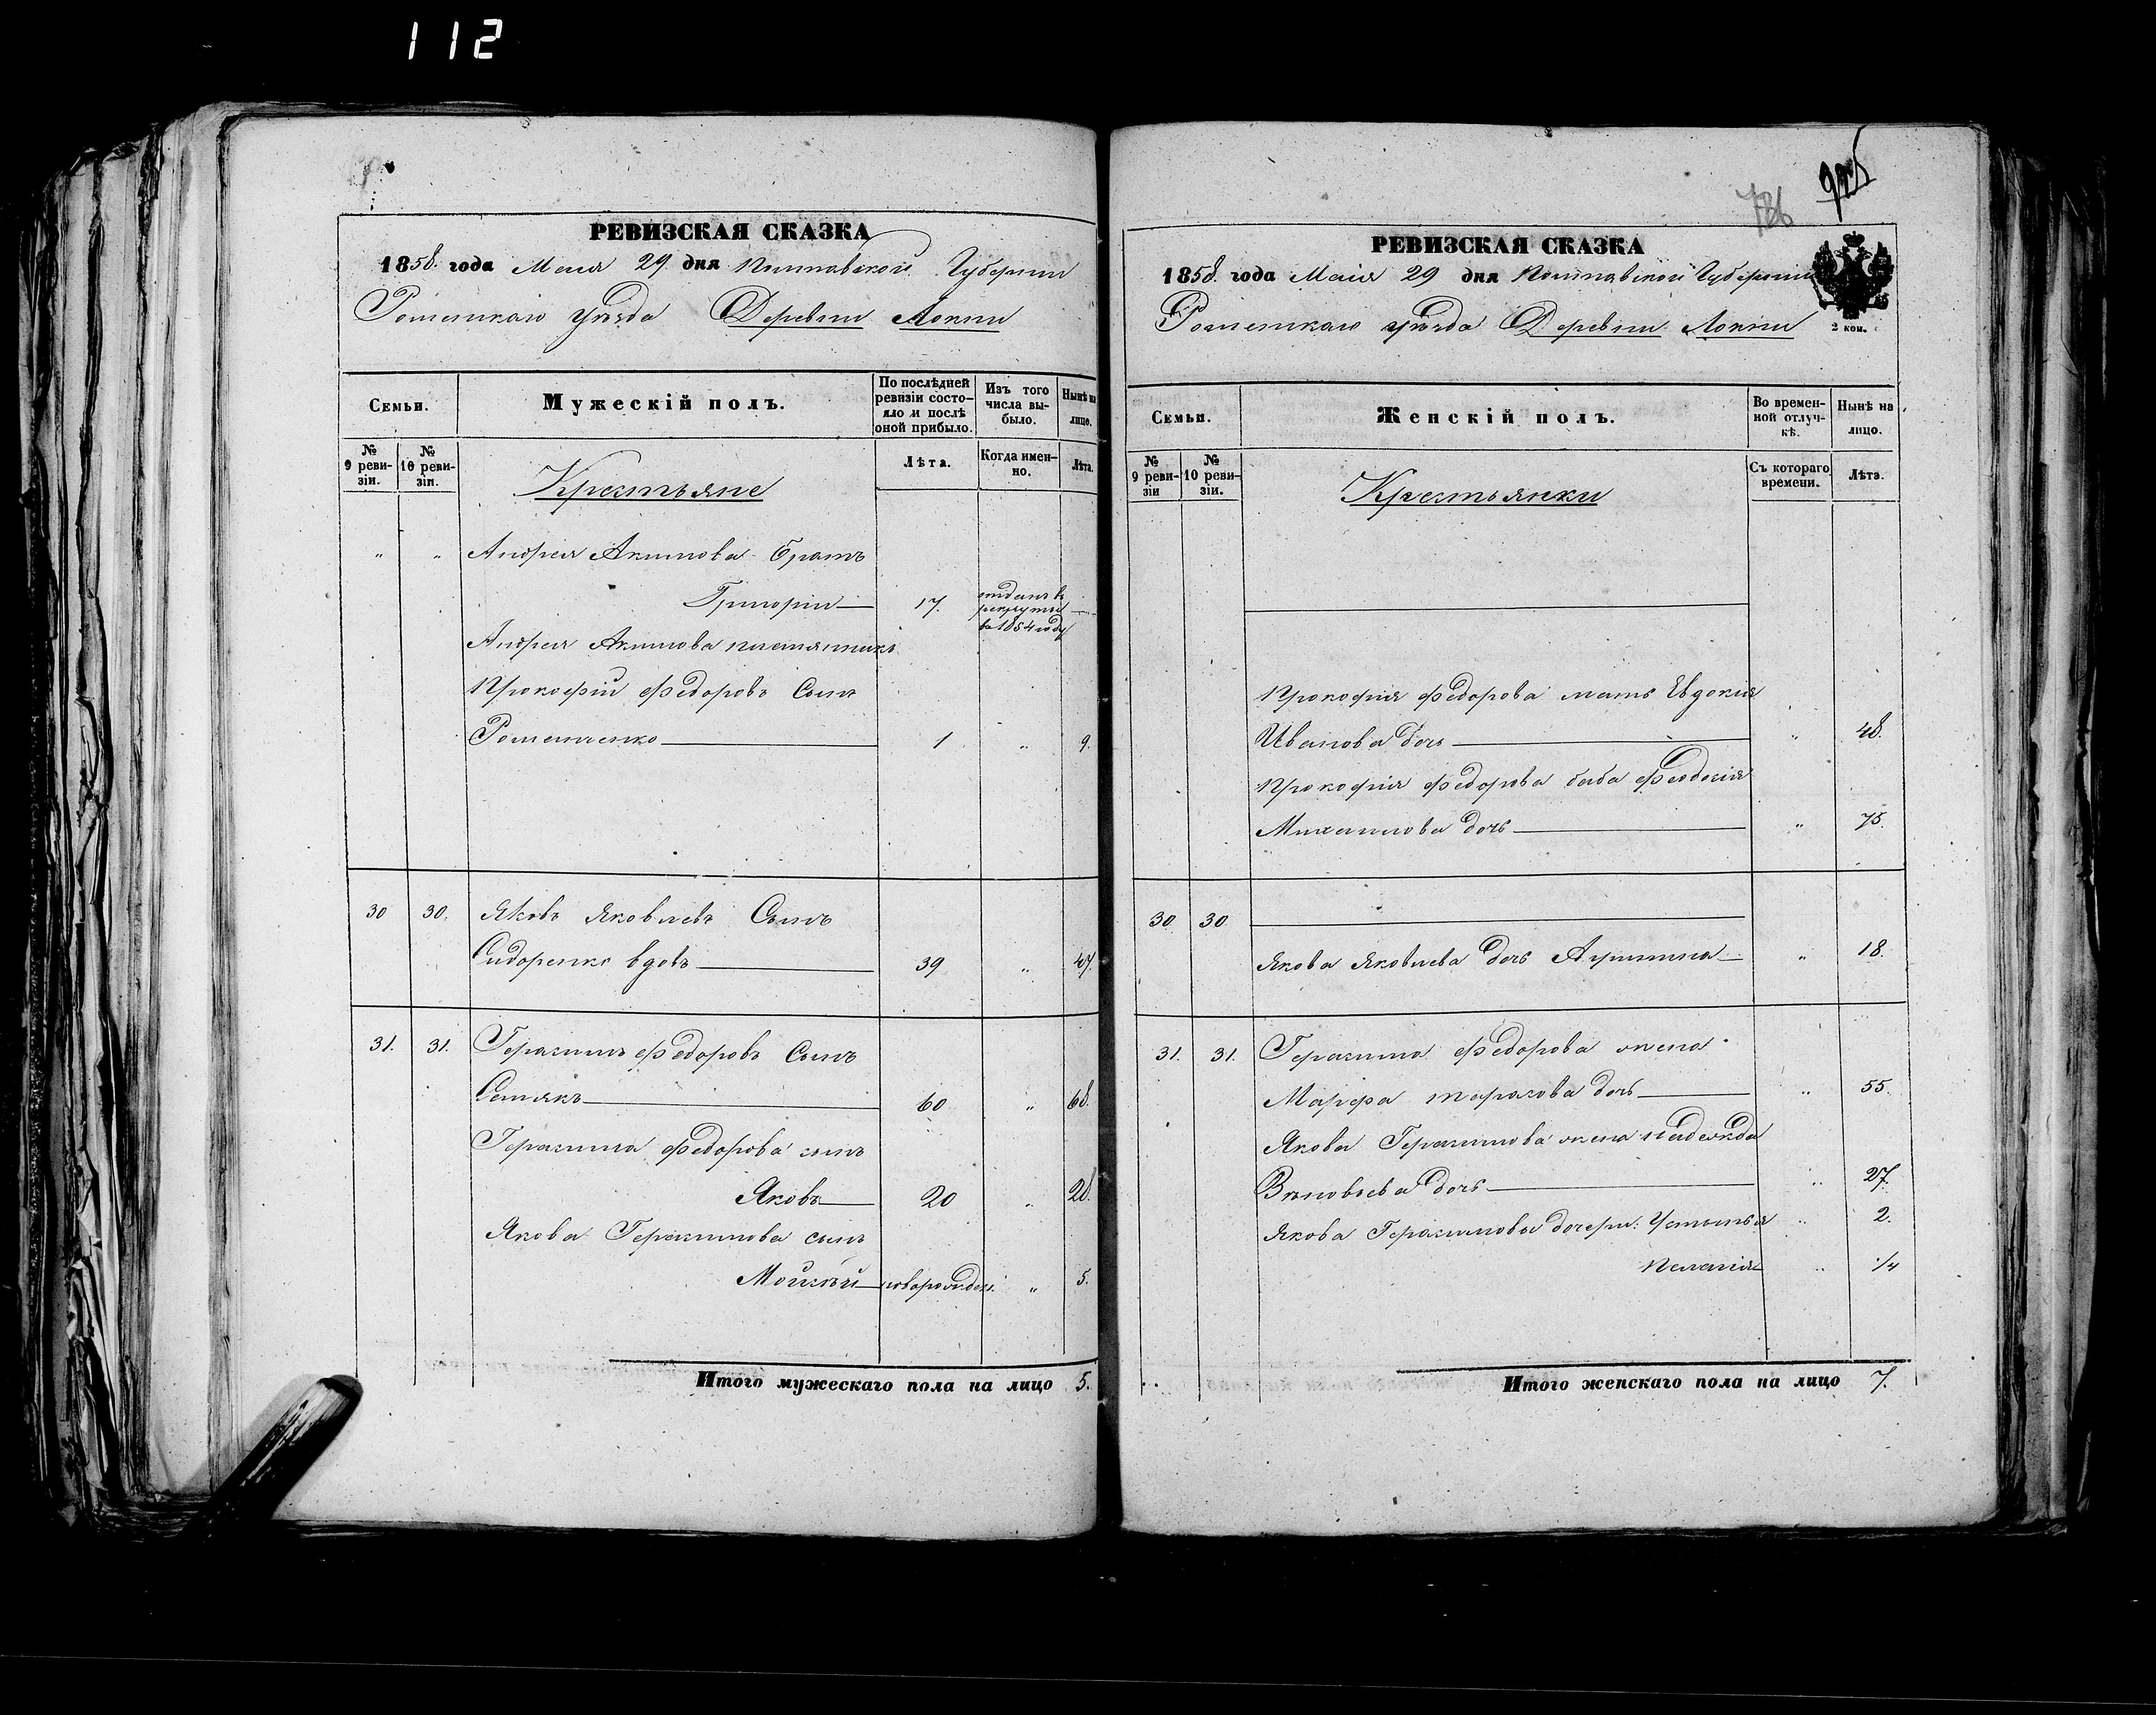 112
РЕВИЗСКАЯ СКАЗКА
1858. года Маия 29 дня Полтавской Губернии
Роменскаго уѣзда Деревни Локни
Семьи.
Мужескій полъ.
По послѣдней ревизіи состояло и послѣ оной прибыло.
Изъ того числа выбыло.
Нынѣ на лицо.
№ 9 ревизіи.
№ 10 ревизіи.
Крестьяне
Лѣта.
Когда именно.
Лѣта.
" " Андрея Акимова братъ
Григорій 17. отданъ в рекруты в 1854 году
Андрея Акимова племянникъ
Прокофій Федоровъ Сынъ
Роменченко 1 " 9.
30 30. Яковъ Яковлевъ Сынъ
Сидоренко вдовъ 39 " 47.
31. 31. Герасимъ Федоровъ Сынъ
Семякъ 60 " 68.
Герасима Федорова сынъ
Яковъ 20 " 28.
Якова Герасимова сынъ
Моисѣй новорожден. " 5.
Итого мужескаго пола на лицо 5.
786
РЕВИЗСКАЯ СКАЗКА
1858. года Маія 29 дня Полтавской Губерніи
Роменскаго уѣзда Деревни Локни
2 коп.
Семьи.
Женскій полъ.
Во временной отлучкѣ.
Нынѣ на лицо.
№ 9 ревизіи
№ 10 ревизіи.
Крестьянки
Съ котораго времени.
Лѣта.
Прокофія Федорова мать Евдокия
Иванова дочь " 48.
Прокофія Федорова баба Феодосія
Михаилова дочь " 75.
30 30
Якова Яковлева дочь Агрипина " 18.
31. 31. Герасима Федорова жена
Марфа Тарасова дочь " 55.
Якова Герасимова жена Надежда
Зѣновьева дочь " 27.
Якова Герасимова дочери: Устинья " 2.
Пелагія " 1/4
Итого женскаго пола на лицо 7.